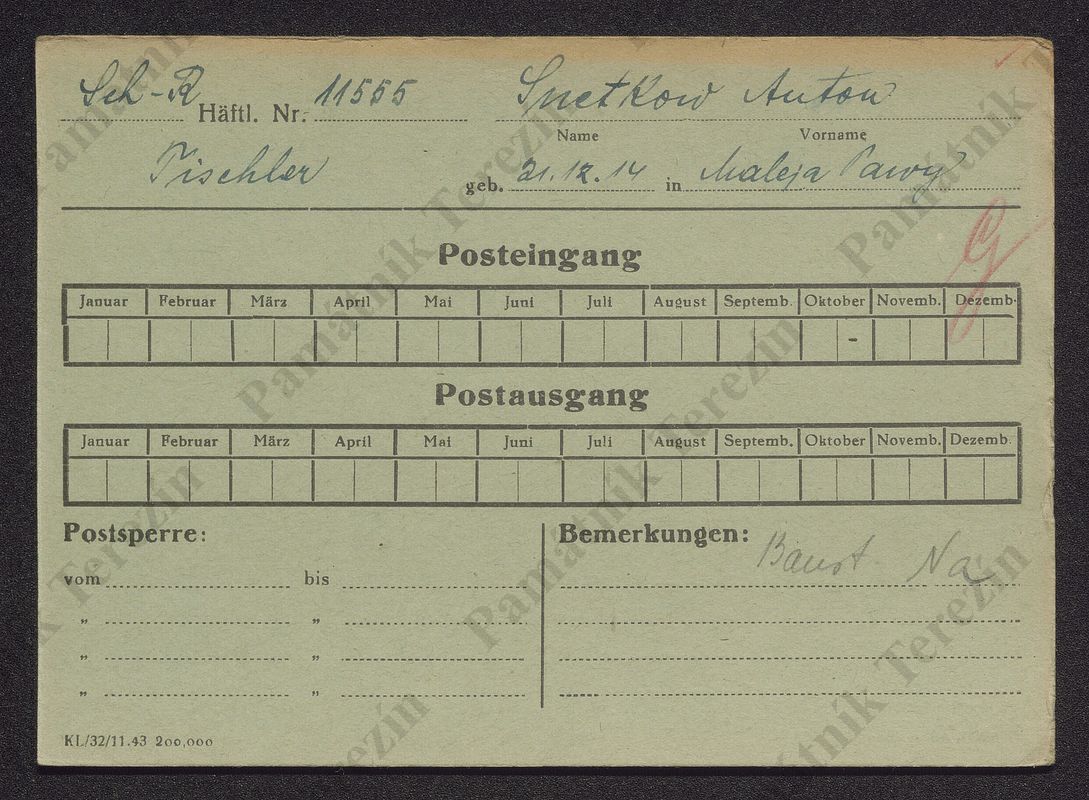 Sch-R Häftl. Nr. 11555 Snetkow Anton
Name Vorname
Tischler geb. 21.12.14 in Maleja
Posteingang
Januar Februar März April Mai Juni Juli August Septemb. Oktober Novemb. Dezemb.
Postausgang
Januar Februar März April Mai Juni Juli August Septemb. Oktober Novemb. Dezemb.
Postsperre: Bemerkungen:
vom bis
" "
" "
" "
KL/32/11.43 200,000
Památník Terezín